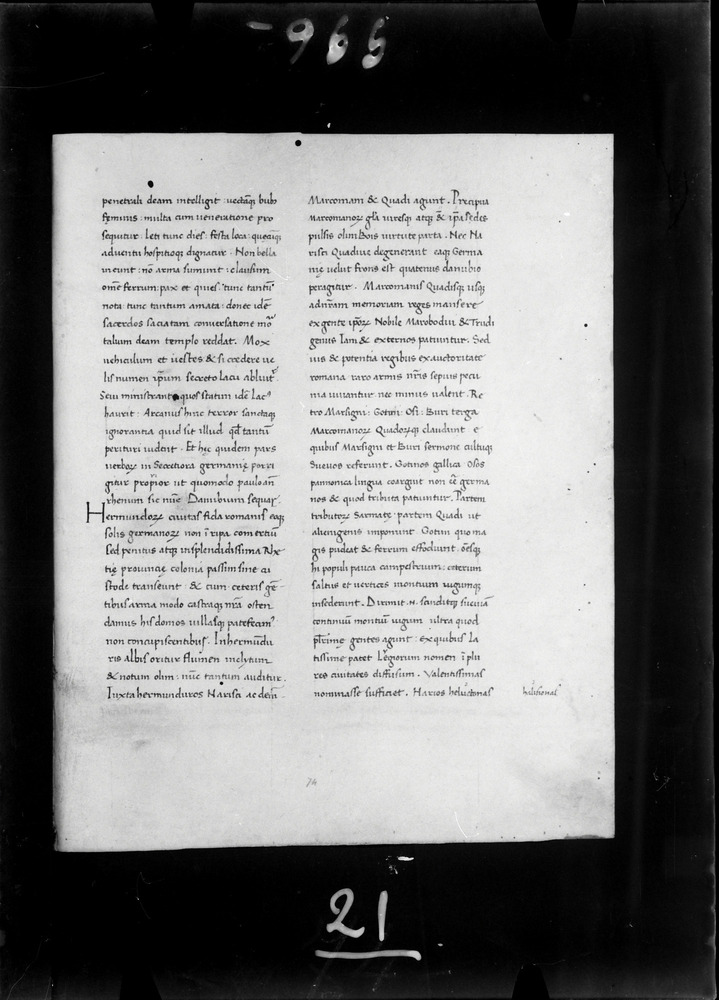 -966
penetrali deam intelligit : uectāq; bubꝰ
fęminis : multa cum ueneratione pro
sequitur. Leti tunc dies : festa loca : quęcūq;
aduentu hospitioq; dignatur. Non bella
ineunt : nō arma sumunt : clausum
omē ferrum: pax et quies tunc tantū
nota: tunc tantum amata : donec idē
sacerdos saciatam conuersatione mor
talium deam templo reddat. Mox
uehiculum et uestes & si credere ue
lis numen ip̄um secreto lacu abluit.
Serui ministrant quos statim idē lacꝰ
haurit : Arcanus hinc terror sanctaq;
ignorantia quid sit illud qd tantū
perituri uident. Et hęc quidem pars
uerboꝝ in Secretiora germanię porri
gitur propior ut quomodo paulo añ
rhenum sic nūc Danubium sequar.
Hermundoꝝ ciuitas fida romanis eoq;
solis germanoꝝ non ī ripa comertiū
sed penitus atq; in splendidissima Rhe
tię prouincię colonia passim sine cu
stode transeunt : & cum ceteris gē
tibus arma modo castraq; nr̄a osten
damus his domos uillasq; patefecimꝰ
non concupiscentibus. In hermundu
ris albis oritur flumen inclytum
& notum olim : nūc tantum auditur.
Iuxta hermunduros Narisci ac dein
Marcomani & Quadi agunt. Precipua
marcomanoꝝ gl̄a uiresq; atq; & ip̄a sedes
pulsis olim Bois uirtute parta. Nec Na
risci Quadiue degenerant eaq; Germa
nię uelut frons est quatenus danubio
peragitur. Marcomanis Quadisq; usq;
ad nr̄am memoriam reges mansere
ex gente ip̄oꝝ Nobile Marobodui & Trudi
genus Iam & externos patiuntur. Sed
uis & potentia regibus ex auctoritate
romana raro armis nr̄is sepius pecu
nia iuuantur nec minus ualent. Re
tro Marsigni : Gotini : Osi : Buri terga
Marcomanoꝝ Quadoꝝq; claudunt e
quibus Marsigni et Buri sermone cultuq;
Sueuos referunt. Gotinos gallica Osos
pannonica lingua coarguit non eē germa
nos & quod tributa patiuntur. Partem
tributoꝝ Sarmatę partem Quadi ut
alienigenis imponunt. Gotini quo ma
gis pudeat & ferrum effodiunt. oēsq;
hi populi pauca campestrium : ceterum
saltus et uertices montium iugumq;
insederunt. Dirimit .N. scinditq; sueuiā
continuū montiū iugum ultra quod
plrime gentes agunt : ex quibus la
tissime patet Legiorum nomen ī plu
res ciuitates diffusum. Valentissimas
nominasse sufficiet. Harios heluetonas
heluetonas
74
21